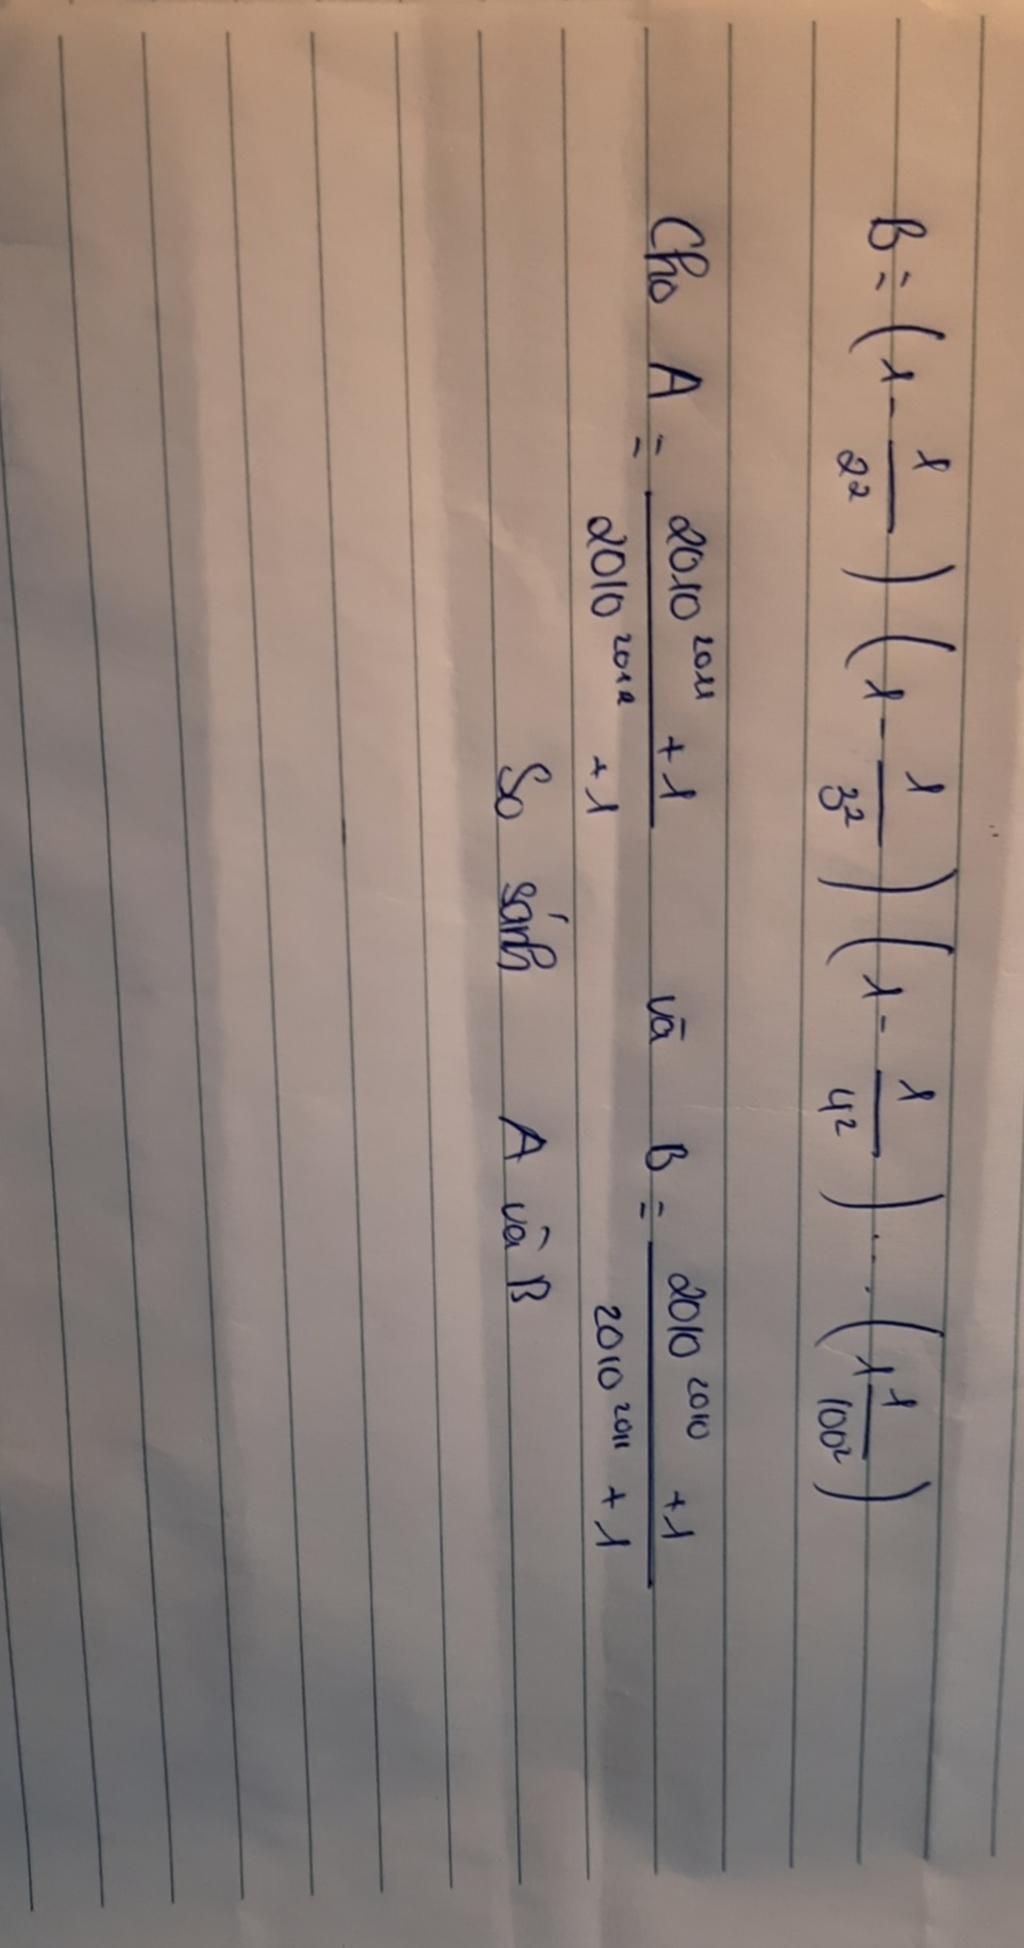 B = (1 - 1/2²) (1 - 1/3²) (1 - 1/4²) ... (1 1/100²)
Cho A = (2010²⁰¹¹ + 1)/(2010²⁰¹² + 1) và B = (2010²⁰¹⁰ + 1)/(2010²⁰¹¹ + 1)
So sánh A và B